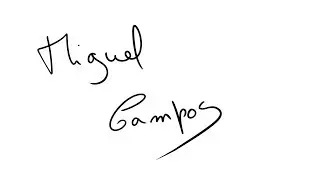 Miguel
Campos